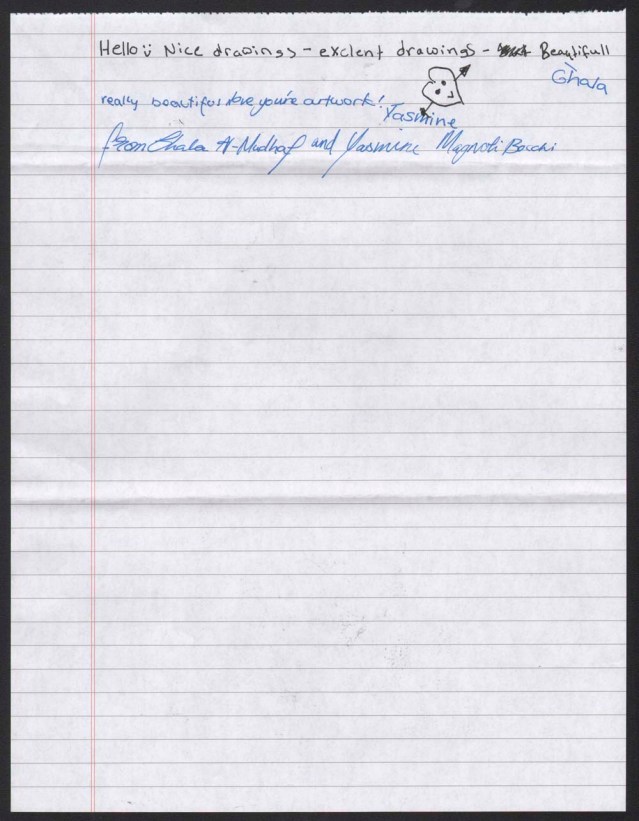 Hello Nice drawings - exclent drawings - Beautifull
Ghala
really beautiful love you're artwork! Yasmine
from Ghala Al-Mudhaf and Yasmine Magnoli Bocchi